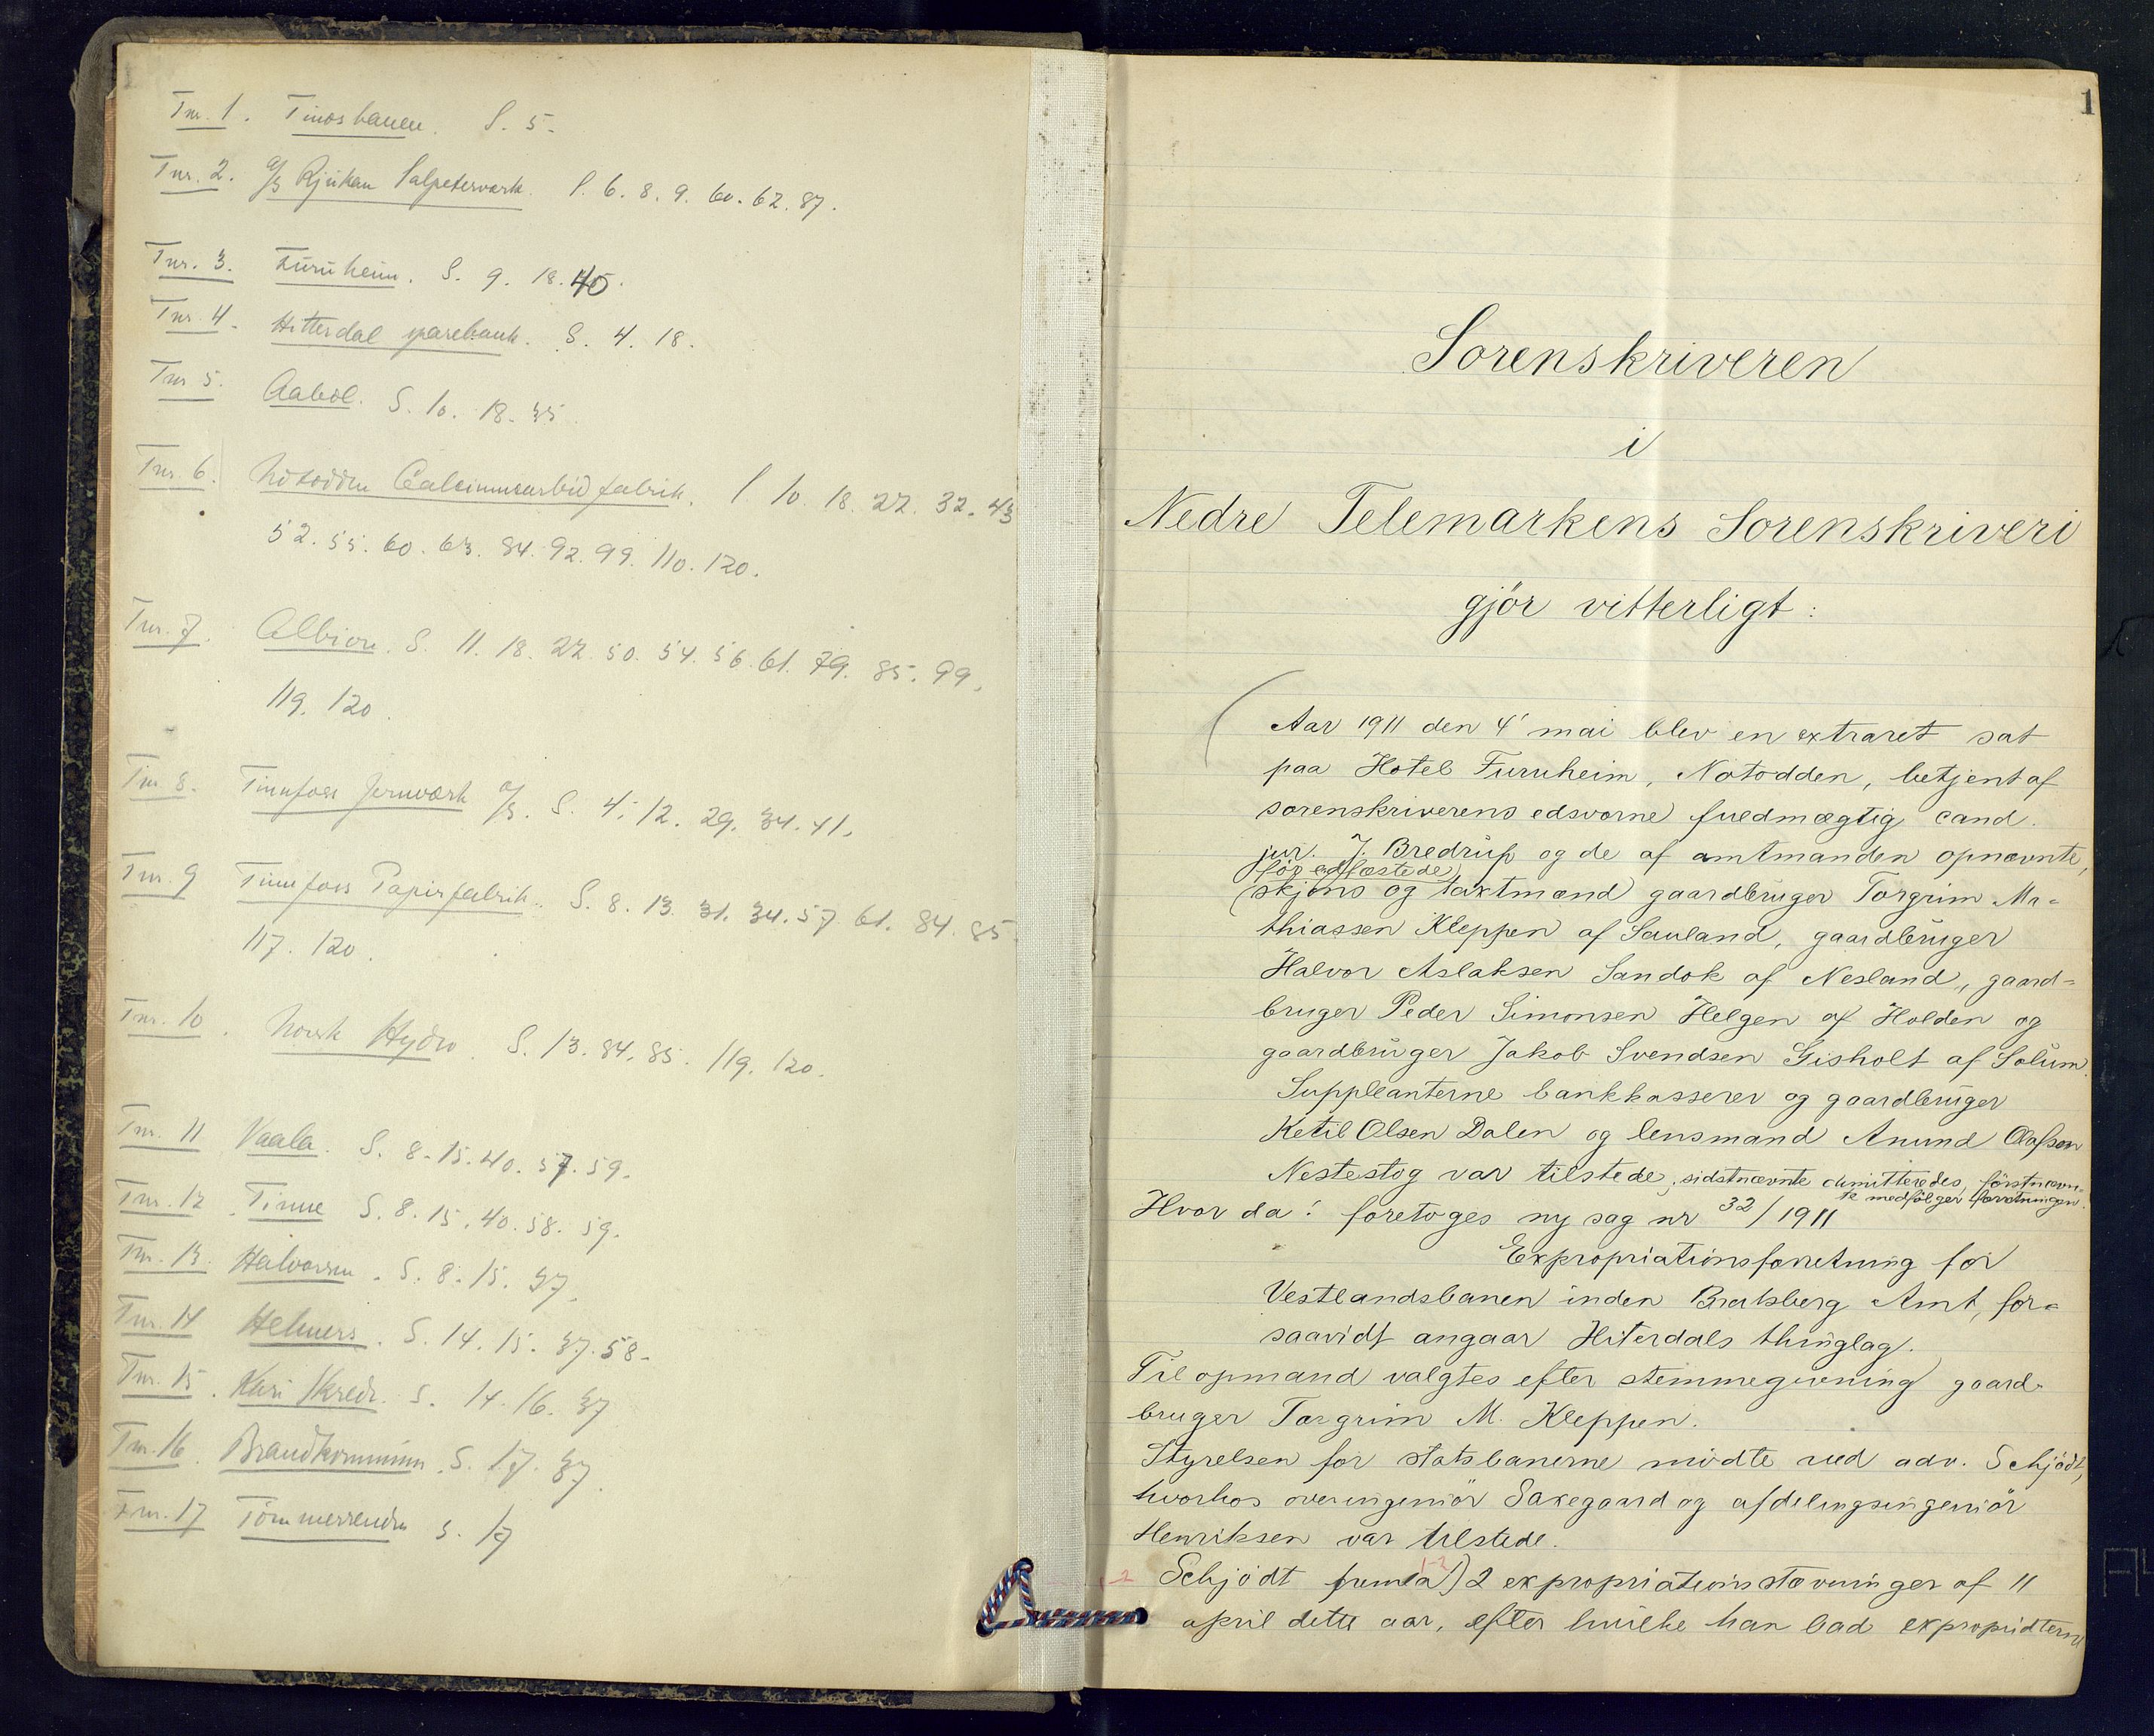 Tnr. 1. Tinosbanen. S. 5.
Tnr. 2. A/S Rjukan Salpeterværk. S. 6. 8. 9. 60. 62. 87.
Tnr. 3. Furuheim. S. 9. 18. 40.
Tnr. 4. Hitterdal sparebank. S. 4. 18.
Tnr 5. Aaböl. S. 10. 18. 35.
Tnr. 6. Notodden Calciumcarbidfabrik. S 10. 18. 22. 32. 43
52. 55. 60. 63. 84. 92. 99. 110. 120.
Tnr. 7. Albion. S. 11. 18. 22. 50. 54. 56. 61. 79. 85. 99.
119. 120.
Tnr 8. Tinnfoss Jernværk A/S. S. 4. 12. 29. 34. 41.
Tnr. 9 Tinnfoss Papirfabrik. S. 8. 13. 31. 34. 57 61. 84. 85
117. 120.
Tnr. 10. Norsk Hydro. S. 13. 84. 85. 119. 120.
Tnr. 11 Vaala. S. 8. 15. 40. 57. 59.
Tnr. 12. Tinne S. 8. 15. 40. 58. 59.
Tnr. 13. Halvorsen. S. 8. 15. 37.
Tnr. 14 Helmers. S. 14. 15. 37. 58.
Tnr. 15. Kari Skredr. S. 14. 16. 37
Tnr. 16. Brandkommun. S. 17. 37.
Tnr. 17 Tömmerrenden S. 17
1
Sorenskriveren
i
Nedre Telemarkens Sorenskriveri
gjör vitterligt:
Aar 1911 den 4' mai blev en extraret sat
paa Hotel Furuheim, Notodden, betjent af
sorenskriverens edsvorne fuldmægtig cand.
jur. J. Bredrup og de af amtmanden opnævnte,
för edfæstede
skjøns og taxtmænd gaardbruger Torgrim Ma-
thiassen Kleppen af Sauland, gaardbruger
Halvor Aslaksen Sandok af Nesland, gaard-
bruger Peder Simonsen Helgen af Holden og
gaardbruger Jakob Svendsen Gisholt af Solum.
Suppleanterne bankkasserer og gaardbruger
Ketil Olsen Dalen og lensmand Anund Olafson
Nestestog var tilstede; sidstnævnte dimitteredes, förstnævn-
te medfölger forretningen.
Hvor da: foretoges ny sag nr 32/1911
Expropriationsforretning for
Vestlandsbanen inden Bratsberg Amt, for-
saavidt angaar Hiterdals thinglag.
Til opmand valgtes efter stemmegivning gaard-
bruger Torgrim M. Kleppen.
Styrelsen for statsbanerne mödte ved adv. Schjödt,
hvorhos overingeniör Saxegaard og afdelingsingeniör
Henriksen var tilstede.
Schjödt freml a) 2 expropriationsstævninger af 11
april dette aar, efter hvilke han bad expropridterne